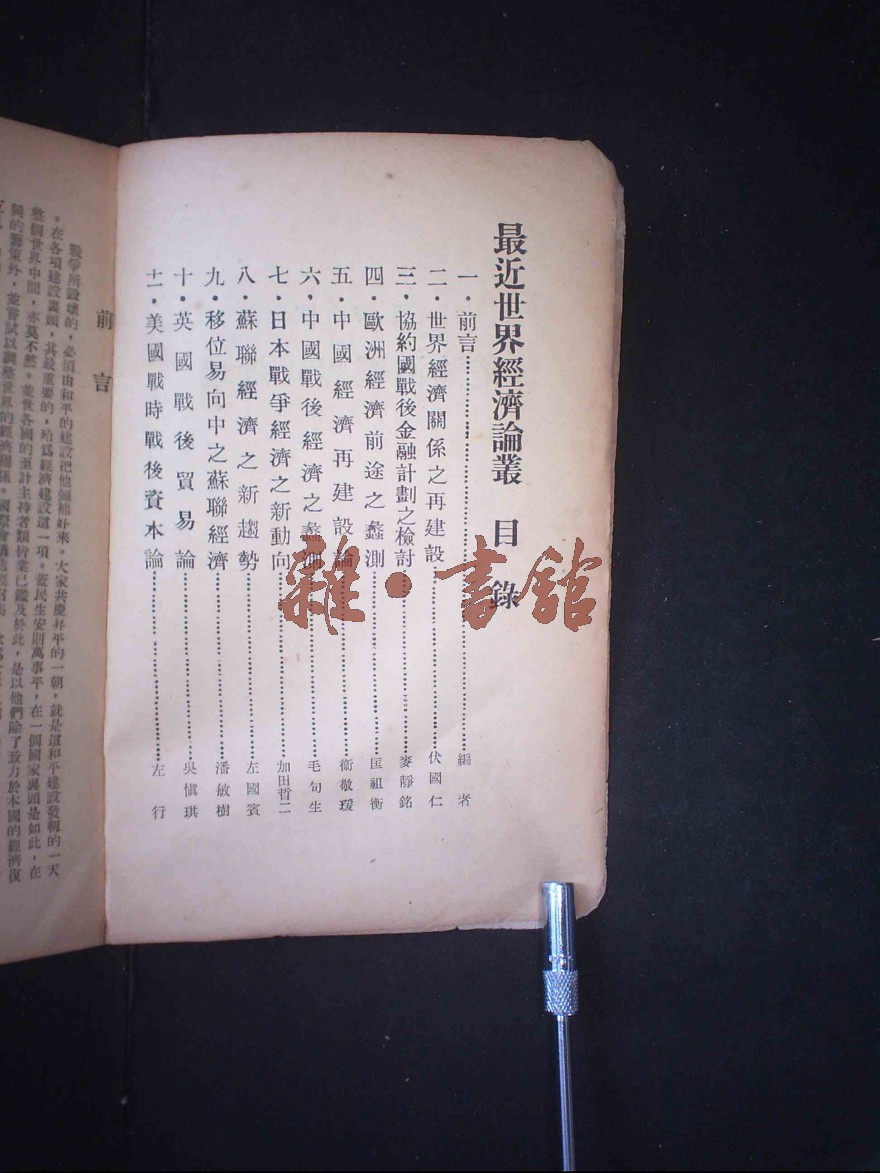 最近世界經濟論叢 目錄
一・前言……編者
二・世界經濟關係之再建設……伏國仁
三・協約國戰後金融計劃之檢討……麥靜銘
四・歐洲經濟前途之蠡測……匡祖衡
五・中國經濟再建設論……衞敬瑗
六・中國戰後經濟之蠡測……毛旬生
七・日本戰爭經濟之新動向……加田哲二
八・蘇聯經濟之新趨勢……左國賓
九・移位易向中之蘇聯經濟……潘敏樹
十・英國戰後貿易論……吳愼琪
十一・美國戰時戰後資本論……左行
雜・書館
前言
戰爭所毀壞的，必須由和平的建設把他彌補好來。大家共慶昇平的一朝，就是這和平建設發軔的一天
。在各項建設裏頭，其最重要的，殆爲經濟建設這一項。蓋民生安則萬事平，在一個國家裏頭是如此，在
整個世界中間，亦莫不然。並世各國的至計主持者類皆業已鑑及於此，是以他們除了致力於本國的經濟復
興的籌策外，並嘗試以調整世界的經濟關係。國際會議